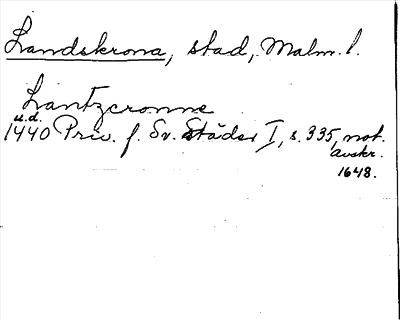 Landskrona, stad, Malm. l.
Lantzcronne
u.d.
1440 Priv. f. Sv. Städer I, s. 335, not.
avskr.
1648.